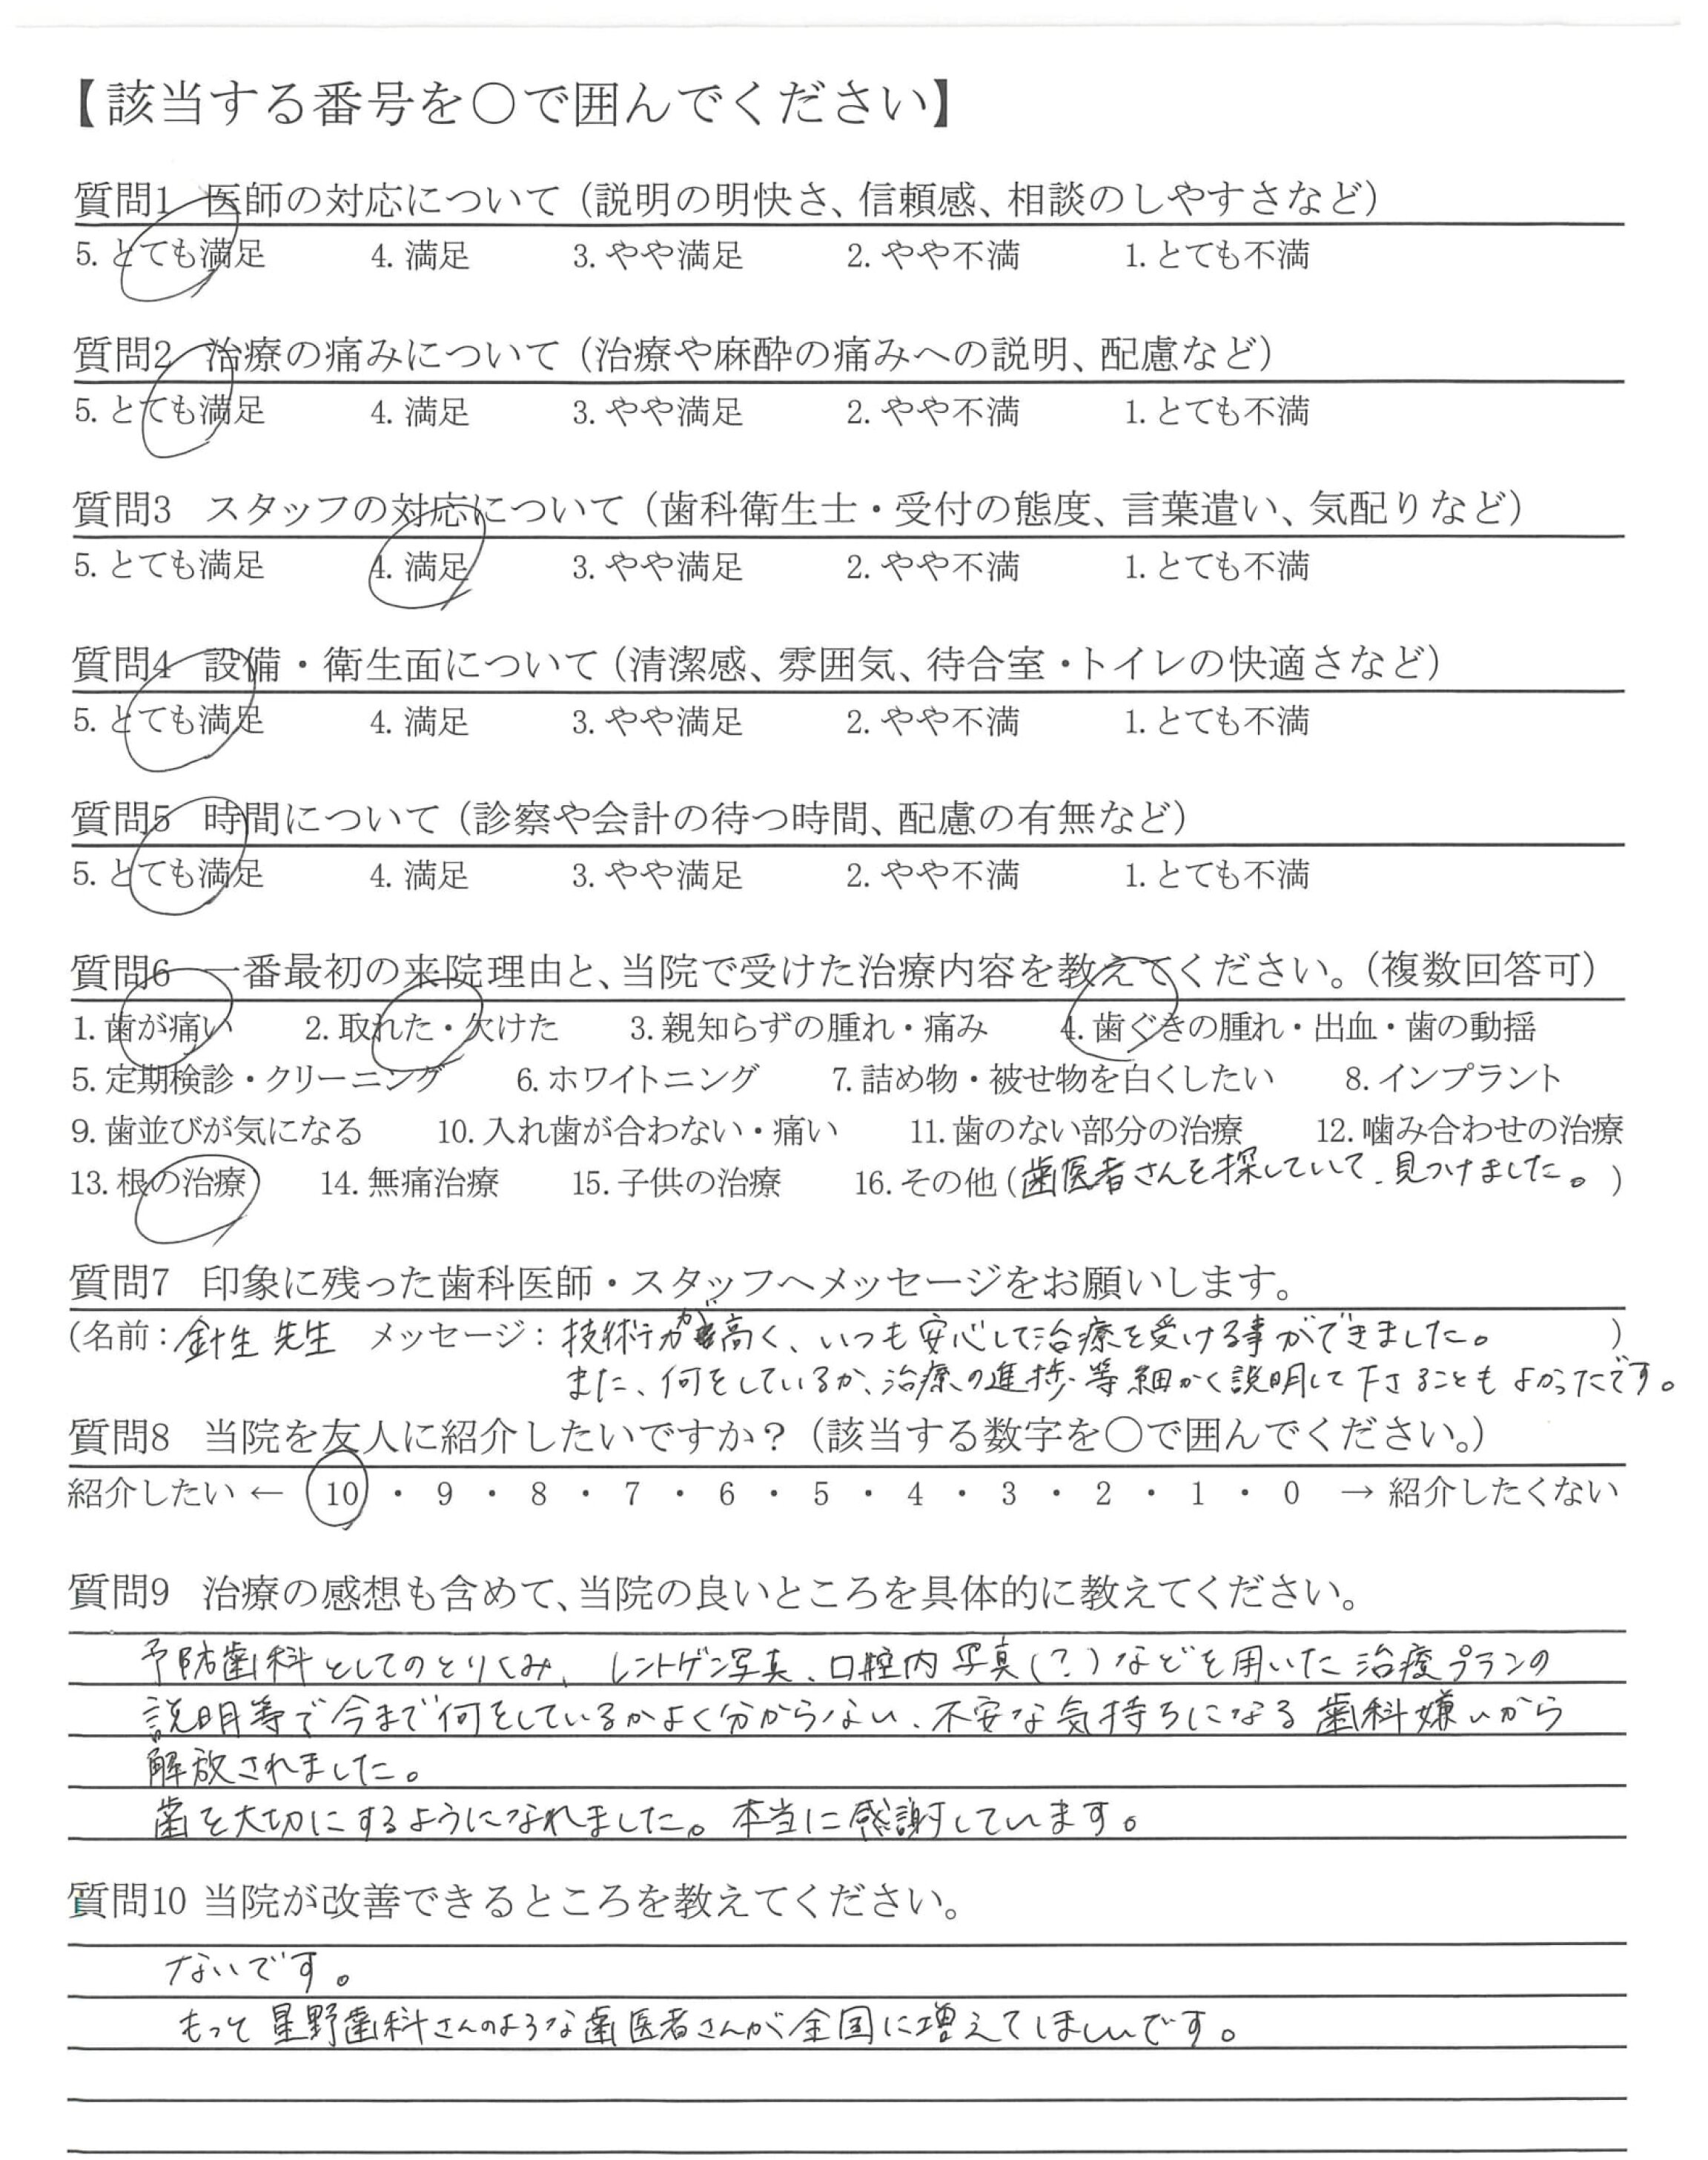 【該当する番号を〇で囲んでください】
質問1 医師の対応について（説明の明快さ、信頼感、相談のしやすさなど）
5. とても満足 4. 満足 3. やや満足 2. やや不満 1. とても不満
質問2 治療の痛みについて（治療や麻酔の痛みへの説明、配慮など）
5. とても満足 4. 満足 3. やや満足 2. やや不満 1. とても不満
質問3 スタッフの対応について（歯科衛生士・受付の態度、言葉遣い、気配りなど）
5. とても満足 4. 満足 3. やや満足 2. やや不満 1. とても不満
質問4 設備・衛生面について（清潔感、雰囲気、待合室・トイレの快適さなど）
5. とても満足 4. 満足 3. やや満足 2. やや不満 1. とても不満
質問5 時間について（診察や会計の待つ時間、配慮の有無など）
5. とても満足 4. 満足 3. やや満足 2. やや不満 1. とても不満
質問6 一番最初の来院理由と、当院で受けた治療内容を教えてください。（複数回答可）
1. 歯が痛い 2. 取れた・欠けた 3. 親知らずの腫れ・痛み 4. 歯ぐきの腫れ・出血・歯の動揺
5. 定期検診・クリーニング 6. ホワイトニング 7. 詰め物・被せ物を白くしたい 8. インプラント
9. 歯並びが気になる 10. 入れ歯が合わない・痛い 11. 歯のない部分の治療 12. 噛み合わせの治療
13. 根の治療 14. 無痛治療 15. 子供の治療 16. その他（歯医者さんを探していて、見つけました。）
質問7 印象に残った歯科医師・スタッフへメッセージをお願いします。
（名前：針生 先生 メッセージ：技術力が高く、いつも安心して治療を受ける事ができました。）
また、何をしているか、治療の進捗等細かく説明して下さることもよかったです。
質問8 当院を友人に紹介したいですか？（該当する数字を〇で囲んでください。）
紹介したい ← 10 ・ 9 ・ 8 ・ 7 ・ 6 ・ 5 ・ 4 ・ 3 ・ 2 ・ 1 ・ 0 → 紹介したくない
質問9 治療の感想も含めて、当院の良いところを具体的に教えてください。
予防歯科としてのとりくみ、レントゲン写真、口腔内写真（？）などを用いた治療プランの
説明等で今まで何をしているかよく分からない、不安な気持ちになる歯科嫌いから
解放されました。
歯を大切にするようになれました。本当に感謝しています。
質問10 当院が改善できるところを教えてください。
ないです。
もっと星野歯科さんのような歯医者さんが全国に増えてほしいです。